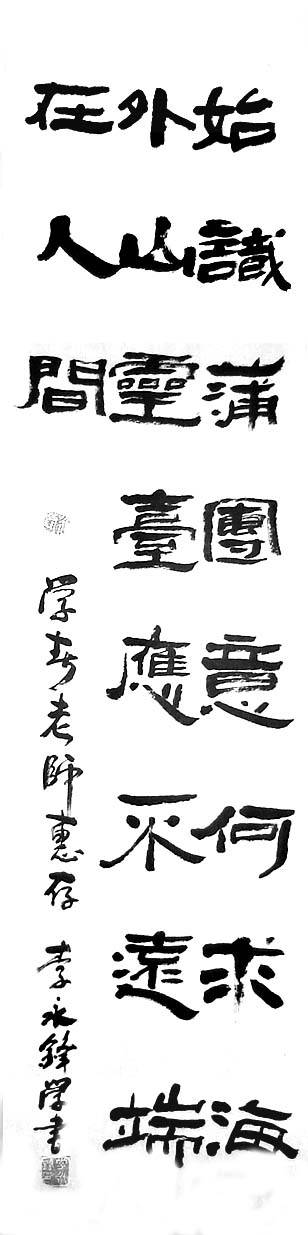 始識蒲團意何求海
外山靈臺應不遠端
在人間
学春老師惠存 李永鋒学書